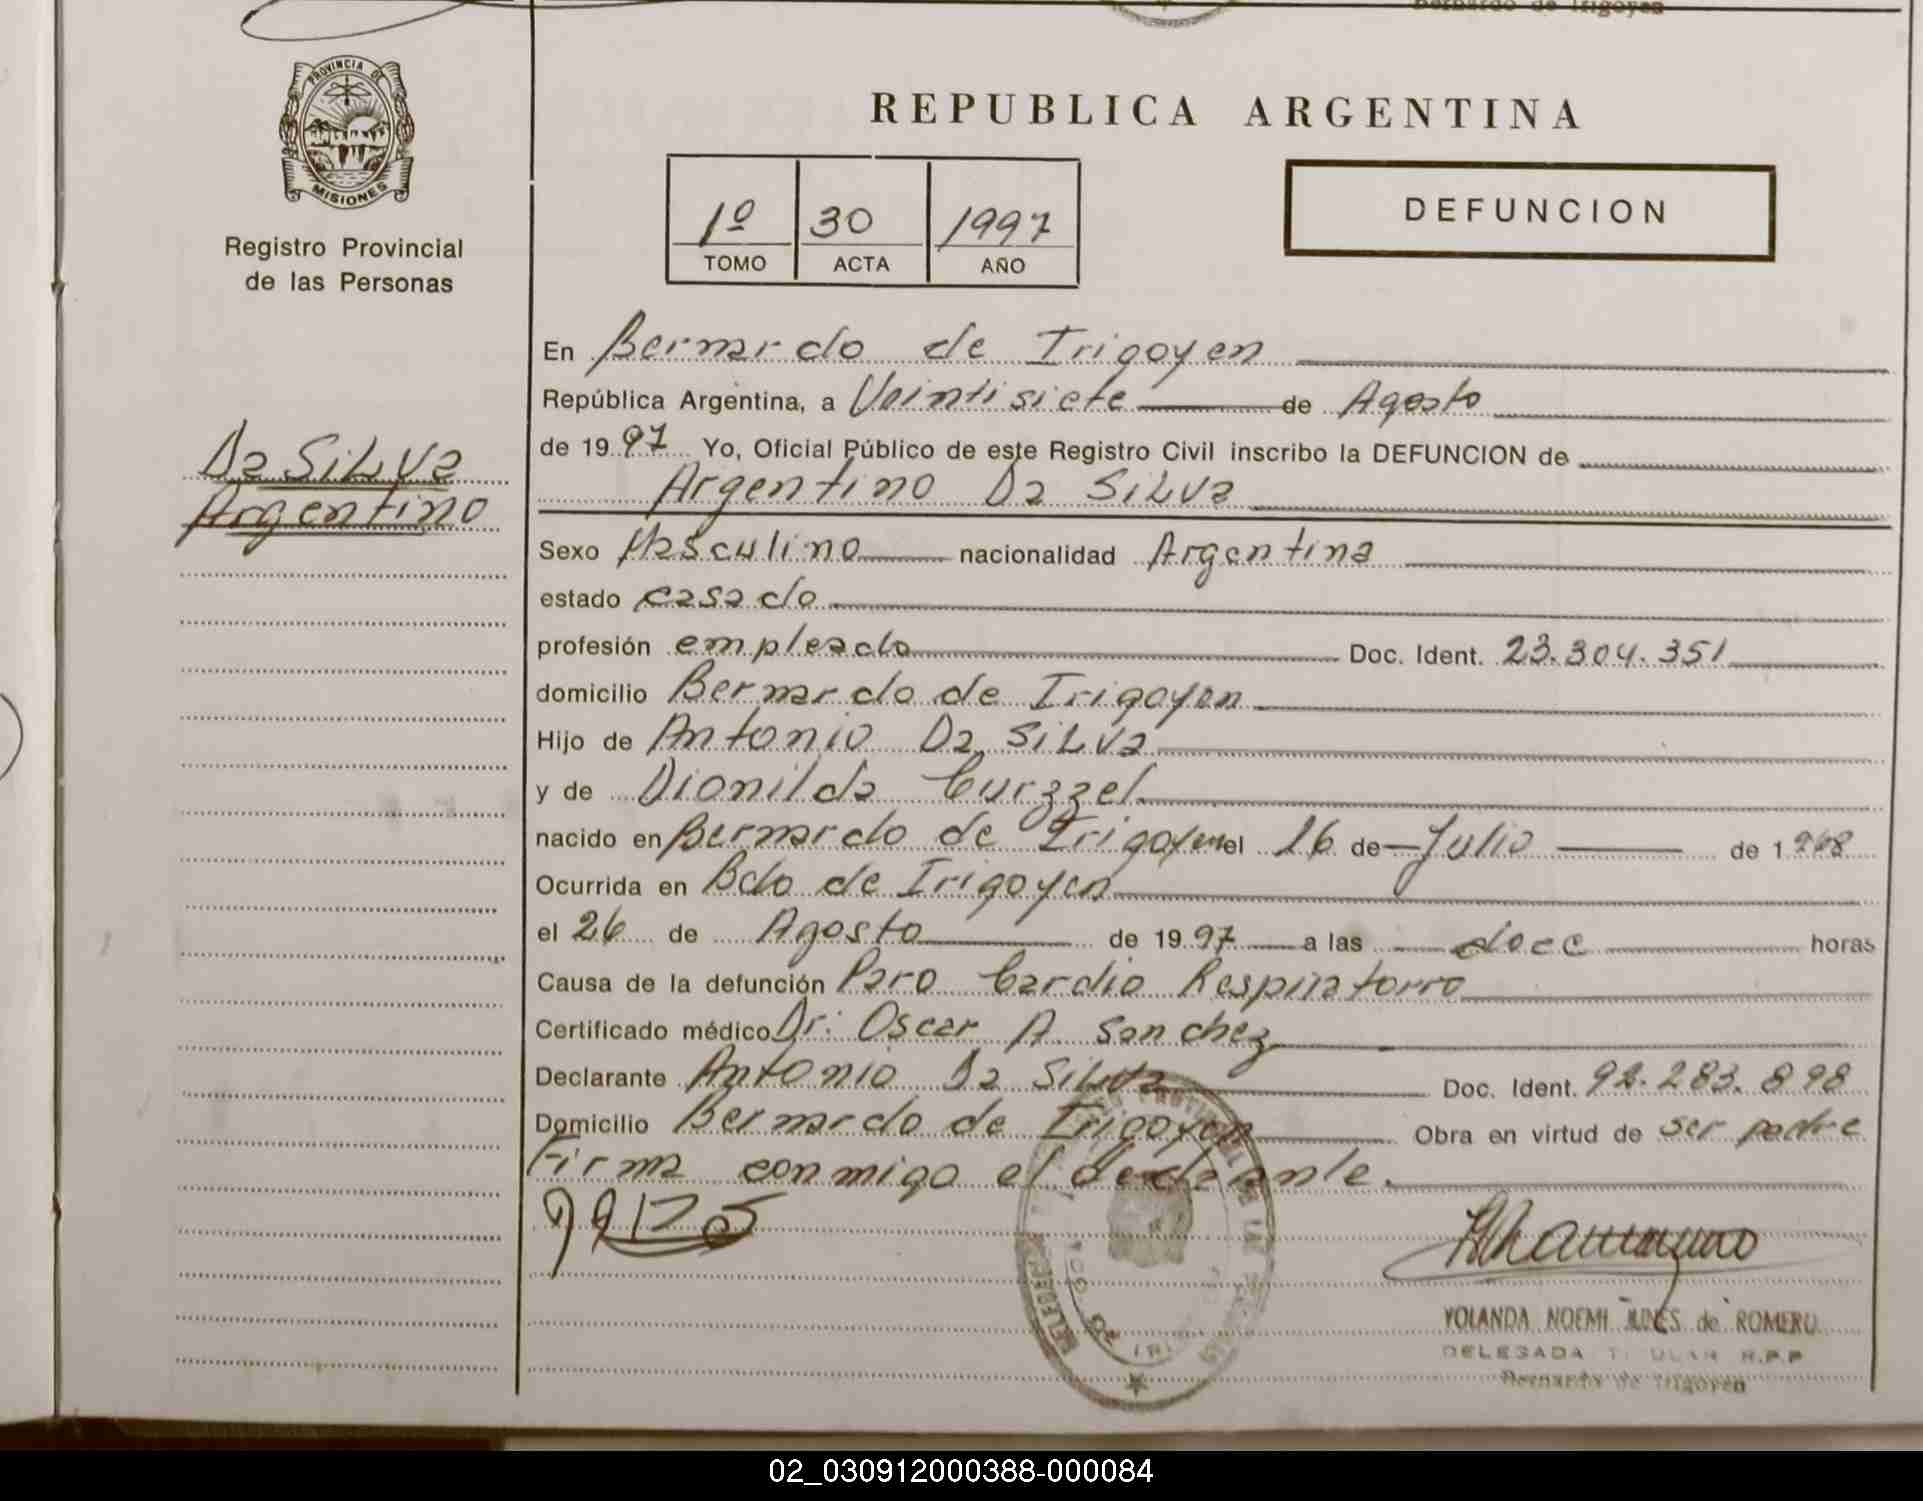 Bernardo de Irigoyen
PROVINCIA DE
MISIONES
Registro Provincial
de las Personas
REPUBLICA ARGENTINA
1º 30 1997
TOMO ACTA AÑO
DEFUNCION
Da SiLVa
Argentino
En Bernardo de Irigoyen
República Argentina, a Veintisiete de Agosto
de 1997 Yo, Oficial Público de este Registro Civil inscribo la DEFUNCION de
Argentino Da SiLVa
Sexo Masculino nacionalidad Argentina
estado casado
profesión empleado Doc. Ident. 23.304.351
domicilio Bernardo de Irigoyen
Hijo de Antonio Da SiLVa
y de Dionilda Curzzel
nacido en Bernardo de Irigoyen el 16 de Julio de 1.968
Ocurrida en Bdo de Irigoyen
el 26 de Agosto de 1997 a las doce horas
Causa de la defunción Paro Cardio Respiratorro
Certificado médico Dr: Oscar A. Sanchez
Declarante Antonio Da SiLVa Doc. Ident. 92.283.898
Domicilio Bernardo de Irigoyen Obra en virtud de ser padre
Firma conmigo el declarante.
YOLANDA NOEMI de ROMERO
DELEGADA TITULAR R.P.P
Bernardo de Irigoyen
02_030912000388-000084